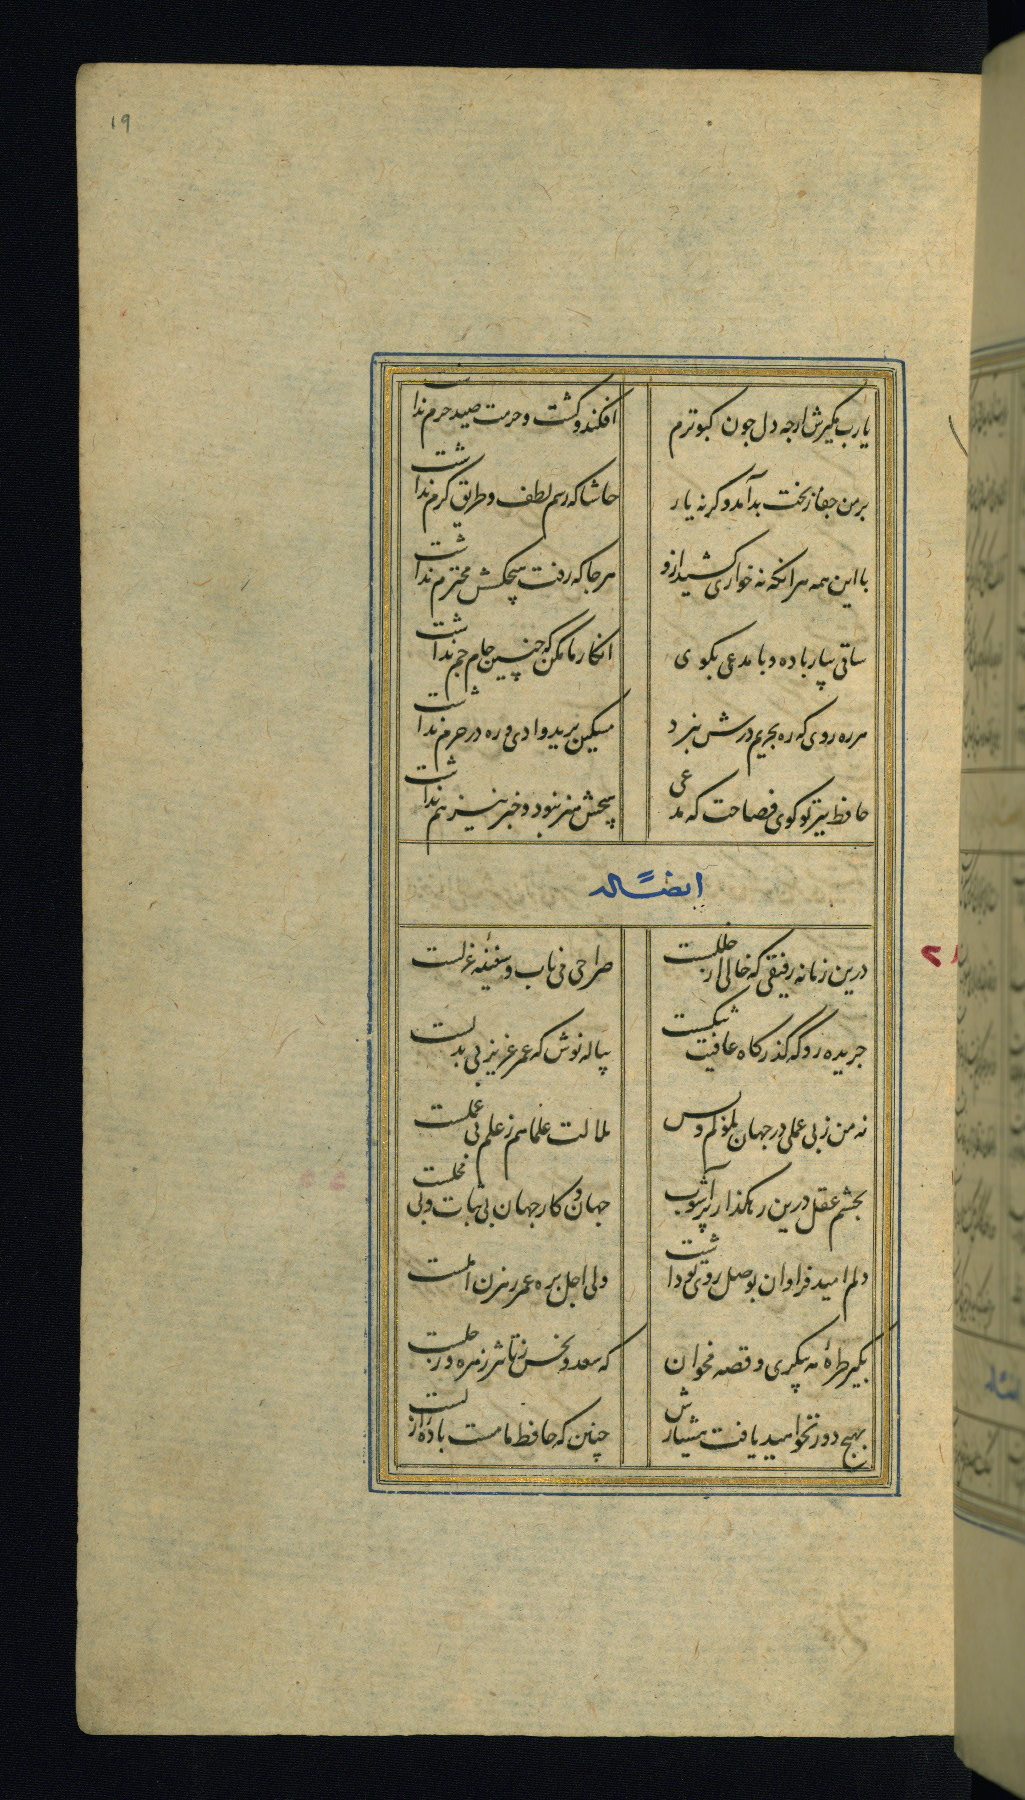 ۱۹
یارب مگیرش ارچه دل چون کبوترم
افکند و کشت و حرمت صید حرم نداشت
بر من جفا ز بخت بد آمد وگرنه یار
حاشا که رسم لطف و طریق کرم نداشت
با این همه هر آنکه نه خواری کشید ازو
هر جا که رفت هیچکسش محترم نداشت
ساقی بیار باده و با مدعی بگوی
انکار ما مکن که چنین جام جم نداشت
هر ره روی که ره بحریم درش نبرد
مسکین برید وادی و ره در حرم نداشت
حافظ ببر تو گوی فصاحت که مدعی
هیچش هنر نبود و خبر نیز هم نداشت
ایضاً له
درین زمانه رفیقی که خالی از خللست
صراحی می ناب و سفینه غزلست
جریده رو که گذرگاه عافیت تنگست
پیاله نوش که عمر عزیز بی بدلست
نه من ز بی عملی در جهان ملولم و بس
ملالت علما هم ز علم بی عملست
بچشم عقل درین رهگذار پر آشوب
جهان و کار جهان بی ثبات و بی محلست
دلم امید فراوان بوصل روی تو داشت
ولی اجل بره عمر رهزن املست
بگیر طرهٔ مه پیکری و قصه مخوان
که سعد و نحس ز تاثیر زهره و زحلست
بهیچ دور نخواهید یافت هشیارش
چنین که حافظ ما مست باده ازلست